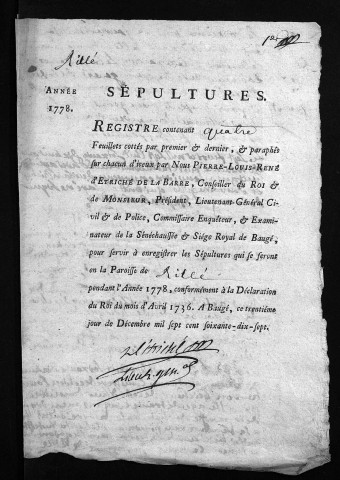 Rillé
ANNÉE
1778.
SÉPULTURES.
REGISTRE contenant quatre
Feuillets cottés par premier & dernier, & paraphés
sur chacun d'iceux par Nous PIERRE-LOUIS-RENÉ
D'ETRICHÉ DE LA BARRE, Conseiller du ROI &
de MONSIEUR, Président, Lieutenant-Général Ci-
vil & de Police, Commissaire Enquêteur, & Exami-
nateur de la Sénéchaussée & Siége Royal de Baugé,
pour servir à enregistrer les Sépultures qui se feront
en la Paroisse de Rillé
pendant l'Année 1778, conformément à la Déclaration
du Roi du mois d'Avril 1736. A Baugé, ce trentième
jour de Décembre mil sept cent soixante-dix-sept.